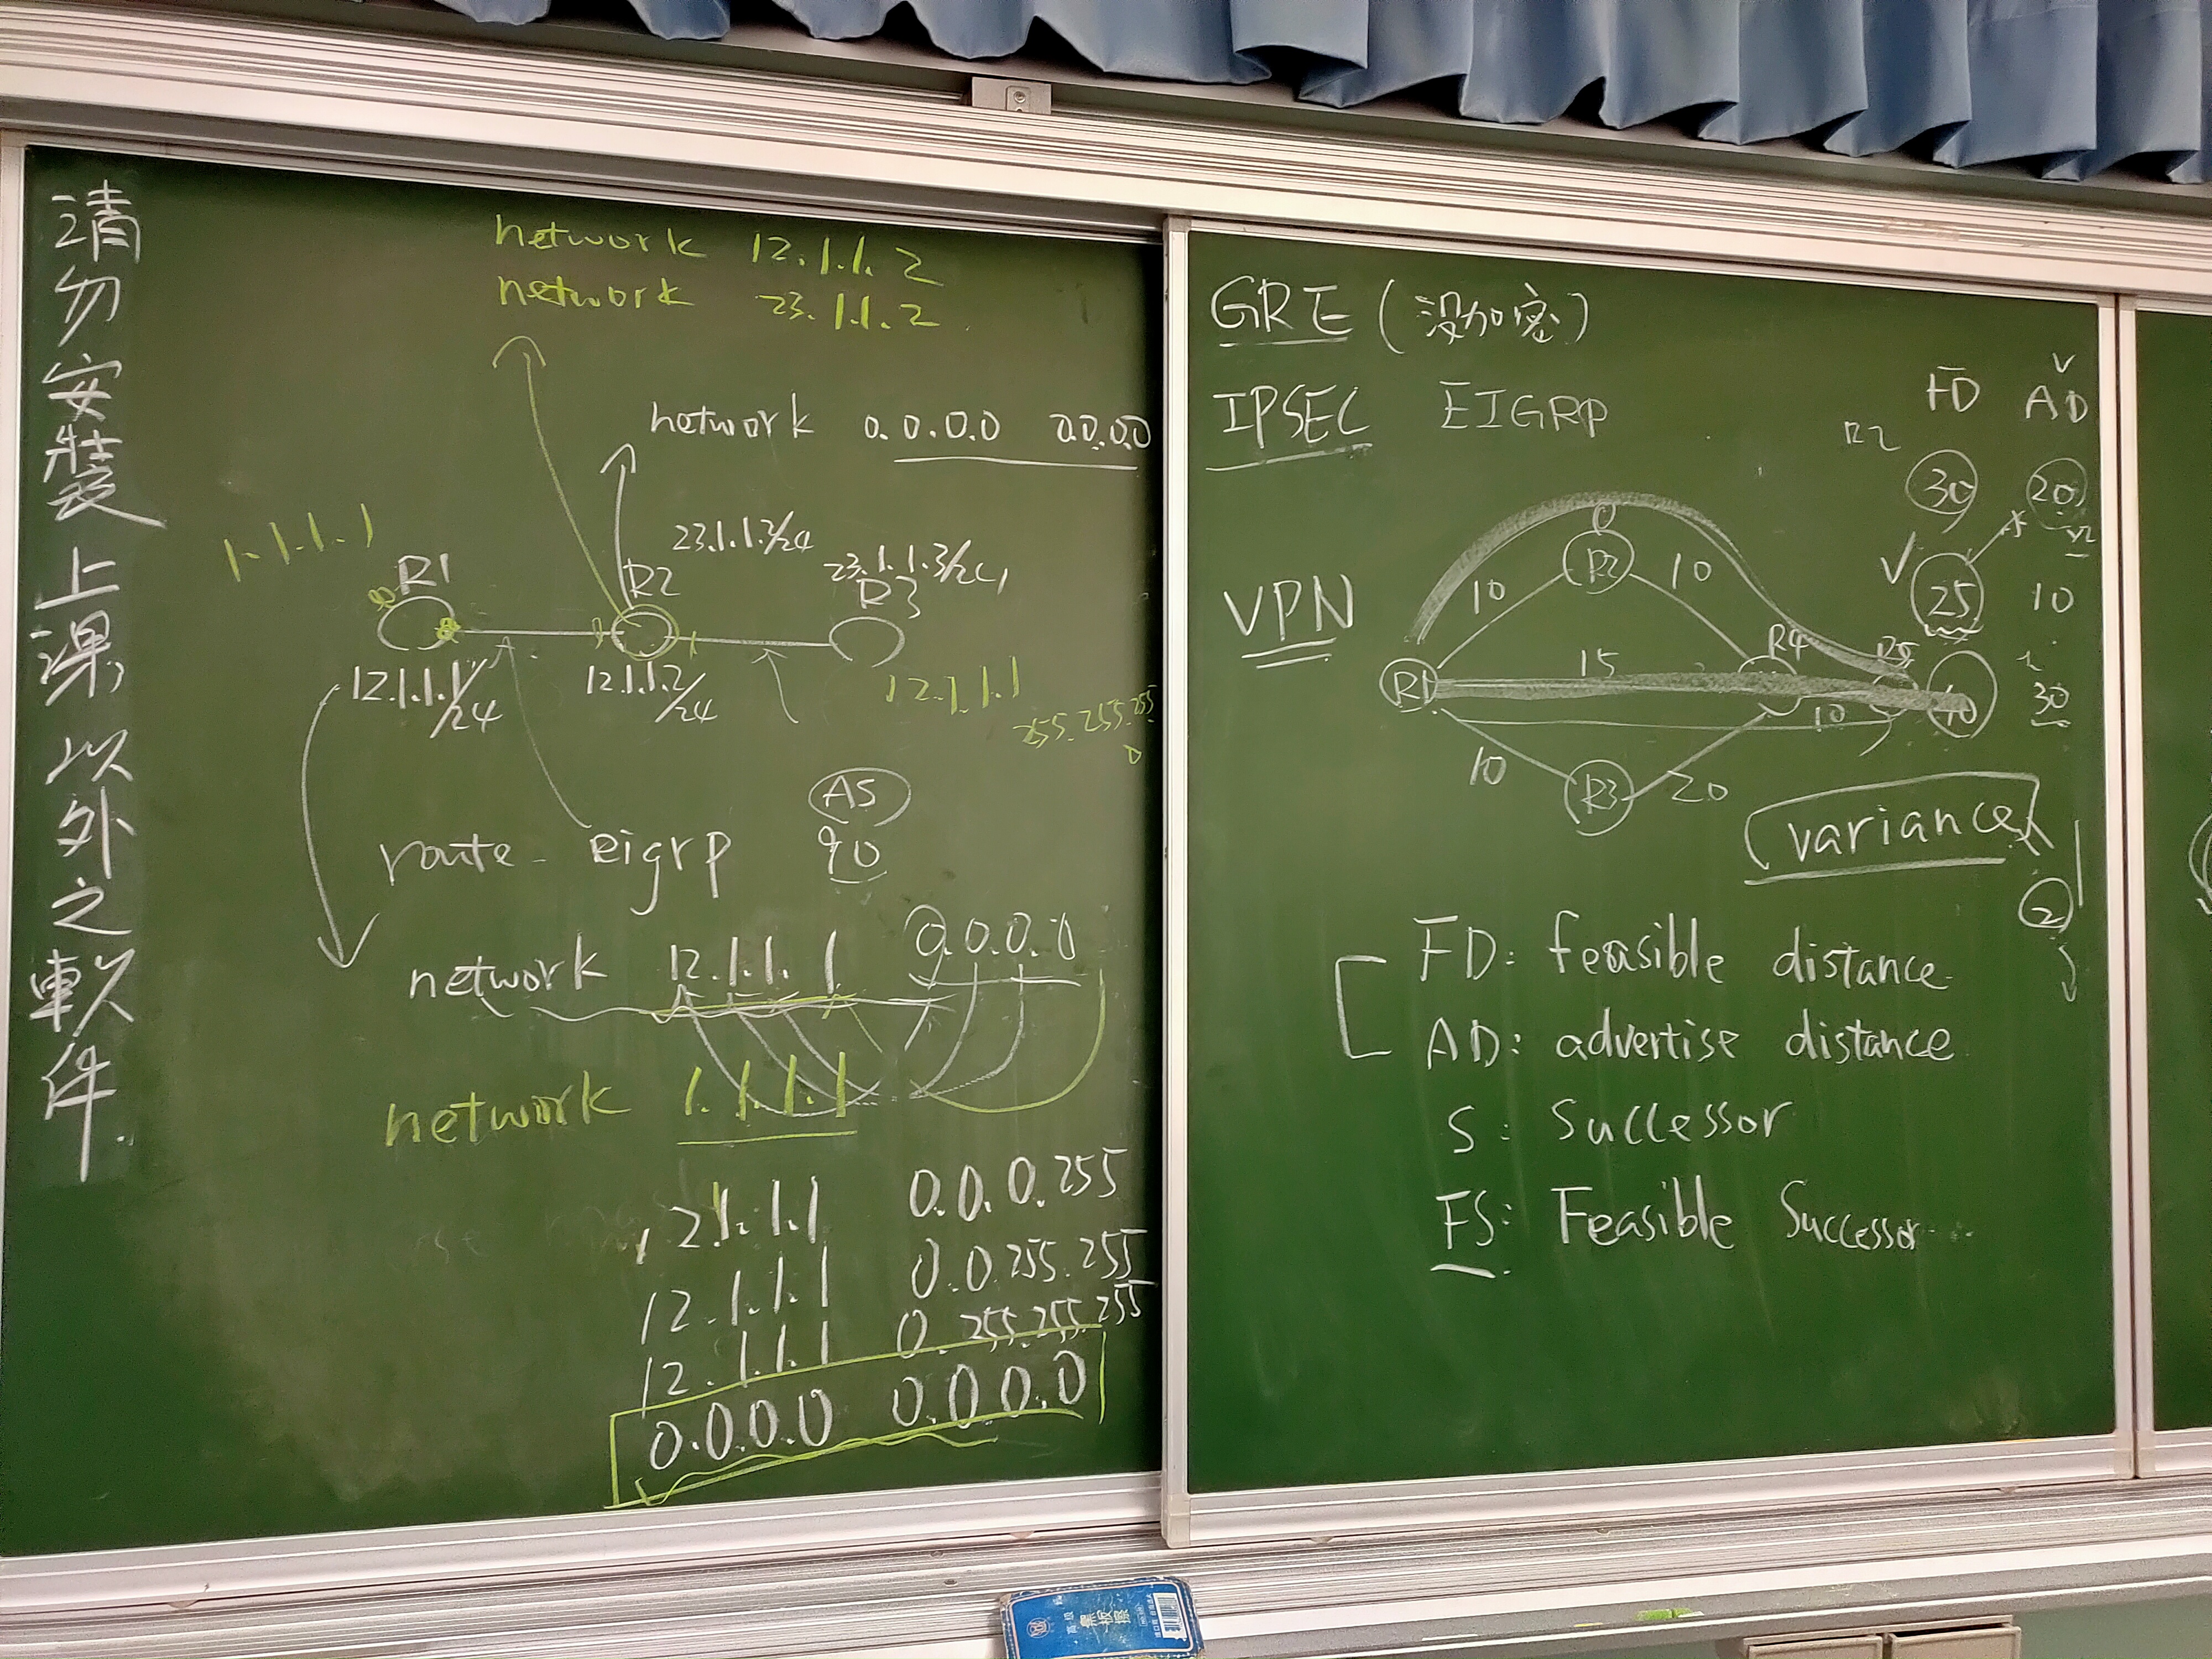 請勿安裝上課以外之軟件.
network 12.1.1.2
network 23.1.1.2
network 0.0.0.0 0.0.0.0
1.1.1.1
23.1.1.2/24
23.1.1.3/24
R1
R2
R3
12.1.1.1/24
12.1.1.2/24
12.1.1.1
255.255.255
0
AS
route eigrp 90
network 12.1.1.1 0.0.0.0
network 1.1.1.1
12.1.1.1 0.0.0.255
12.1.1.1 0.0.255.255
12.1.1.1 0.255.255.255
0.0.0.0 0.0.0.0
GRE (沒加密)
IPSEC EIGRP
VPN
FD AD
R2
30 20
25 10
40 30
R2
10 10
R1 15 R4 R5
10
10 R3 20
variance
2
FD: feasible distance
AD: advertise distance
S: Successor
FS: Feasible Successor
黑板擦